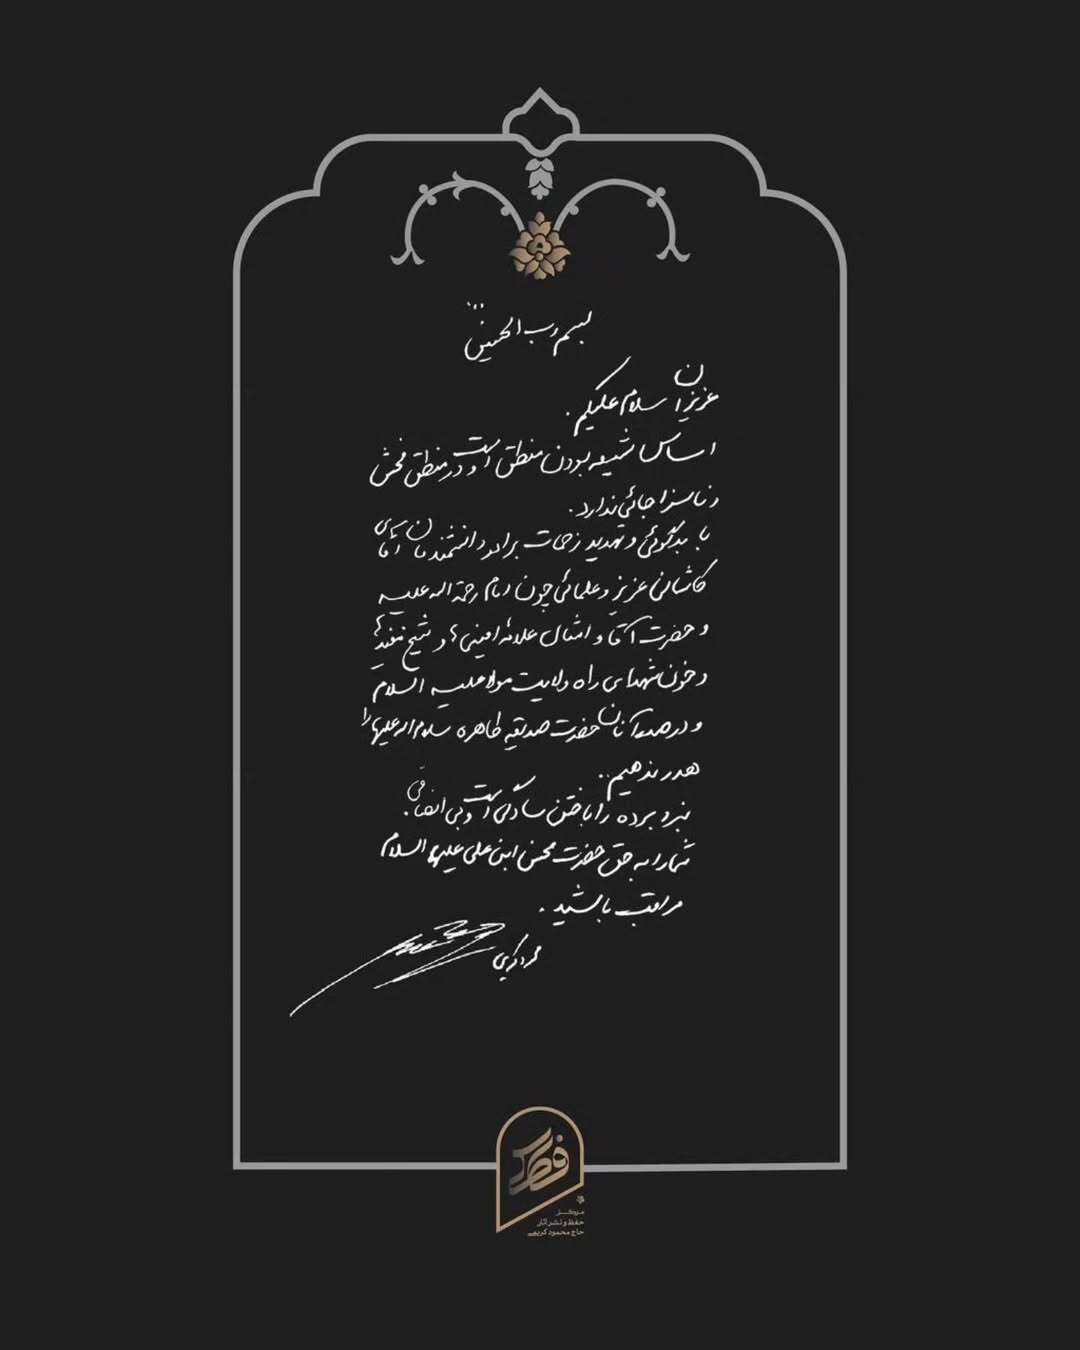 بسم رب الحسین
عزیزان سلام علیکم.
اساس شیعه بودن منطق است و در منطق فحش
و ناسزا جائی ندارد.
با بدگوئی و تهدید زحمات برادر دانشمندمان آقای
کاشانی عزیز و علمائی چون امام رحمة الله علیه
و حضرت آقا و امثال علامه امینی ها و شیخ مفیدها
و خون شهدای راه ولایت مولا علیه السلام
و در صدر آنان حضرت صدیقه طاهره سلام الله علیها را
هدر ندهیم.
نبرد برده را باختن سادگی است و بی انصافی.
شما را به حق حضرت محسن ابن علی علیهما السلام
مراقب باشید.
محمود کریمی
فطرس
مرکز
حفظ و نشر آثار
حاج محمود کریمی